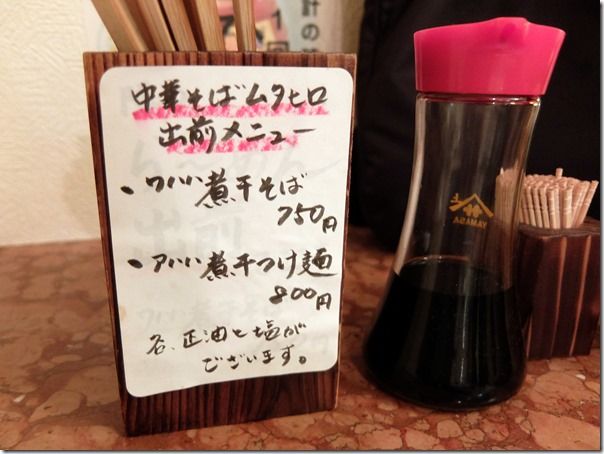 中華そばムタヒロ
出前メニュー
・ワハハ煮干そば
750円
・アハハ煮干つけ麺
800円
各、正油と塩が
ございます。
YAMASA